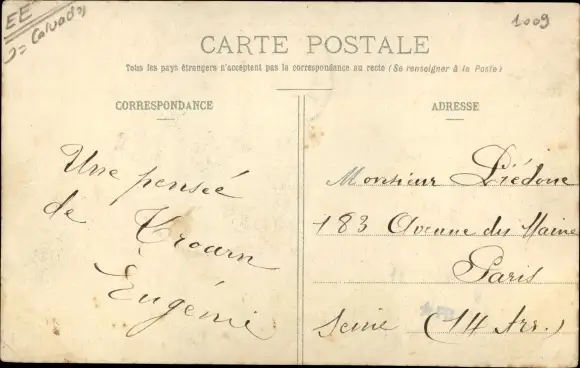 EE
D= Calvados
1009
CARTE POSTALE
Tous les pays étrangers n'acceptent pas la correspondance au recto (Se renseigner à la Poste)
CORRESPONDANCE
Une pensée
de Troarn
Eugénie
ADRESSE
Monsieur Diédone
183 Avenue du Maine
Paris
Seine (14 Arr.)